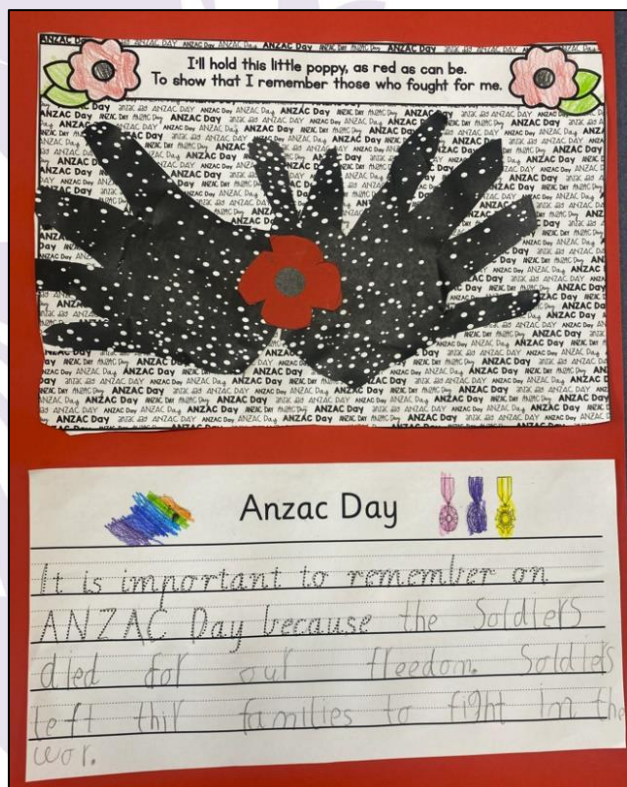 I'll hold this little poppy, as red as can be.
To show that I remember those who fought for me.
Anzac Day
It is important to remember on
ANZAC Day because the Soldiers
died for our freedom. Soldiers
left thir families to fight in the
wor.